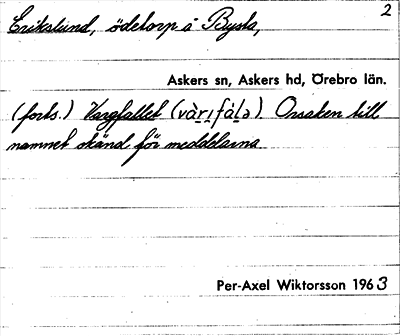 2
Erikslund, ödetorp å Bysta,
Askers sn, Askers hd, Örebro län.
(forts.) Vargfallet (và̠rı̠fàl̠ə). Orsaken till
namnet okänd för meddelarna
Per-Axel Wiktorsson 1963